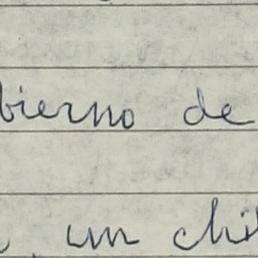 bierno de
un chi